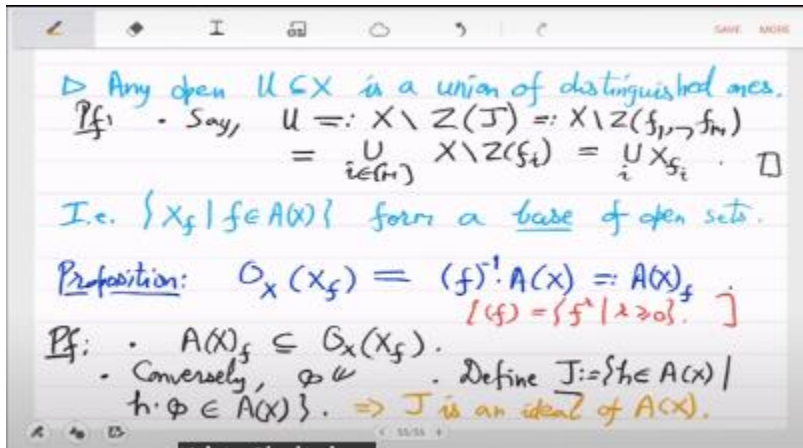 SAVE MORE
▷ Any open U ⊆ X is a union of distinguished ones.
Pf: • Say, U =: X \ Z(J) =: X \ Z(f₁,..,fₘ)
= ∪_{i∈[m]} X \ Z(fᵢ) = ∪ᵢ X_{fᵢ} . □
I.e. {X_f | f ∈ A(X)} form a base of open sets.
Proposition: O_X(X_f) = (f)⁻¹·A(X) =: A(X)_f .
[(f) = {f^λ | λ ≥ 0}. ]
Pf: • A(X)_f ⊆ O_X(X_f).
• Conversely, φ ∈ . Define J := {h ∈ A(X) |
h·φ ∈ A(X)}. ⇒ J is an ideal of A(X).
55/55